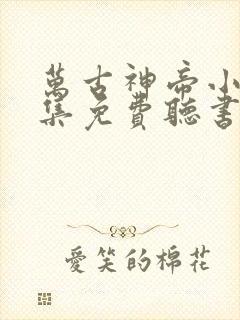 萬古神帝小
集免費聽書
愛笑的棉花